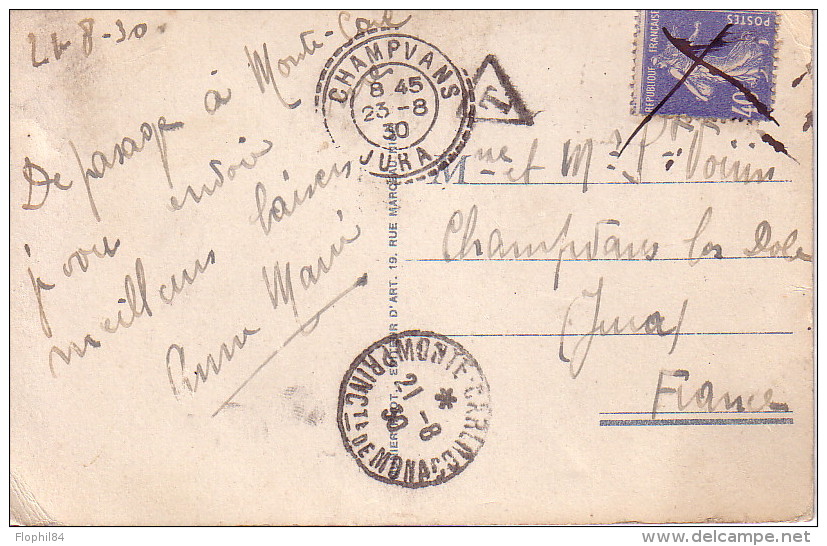 21-8-30
De passage à Monte-Carl
je vous envoie
meilleurs baisers
Anne Marie
CHAMPVANS
8 45
23-8
30
JURA
T
POSTES
REPUBLIQUE FRANÇAISE
40c
Mme et Mr P.
Champvans les Dole
(Jura)
France
D'ART. 19, RUE
MONTE-CARLO
21-8
30
PRINCTÉ DE MONACO
Flophil84